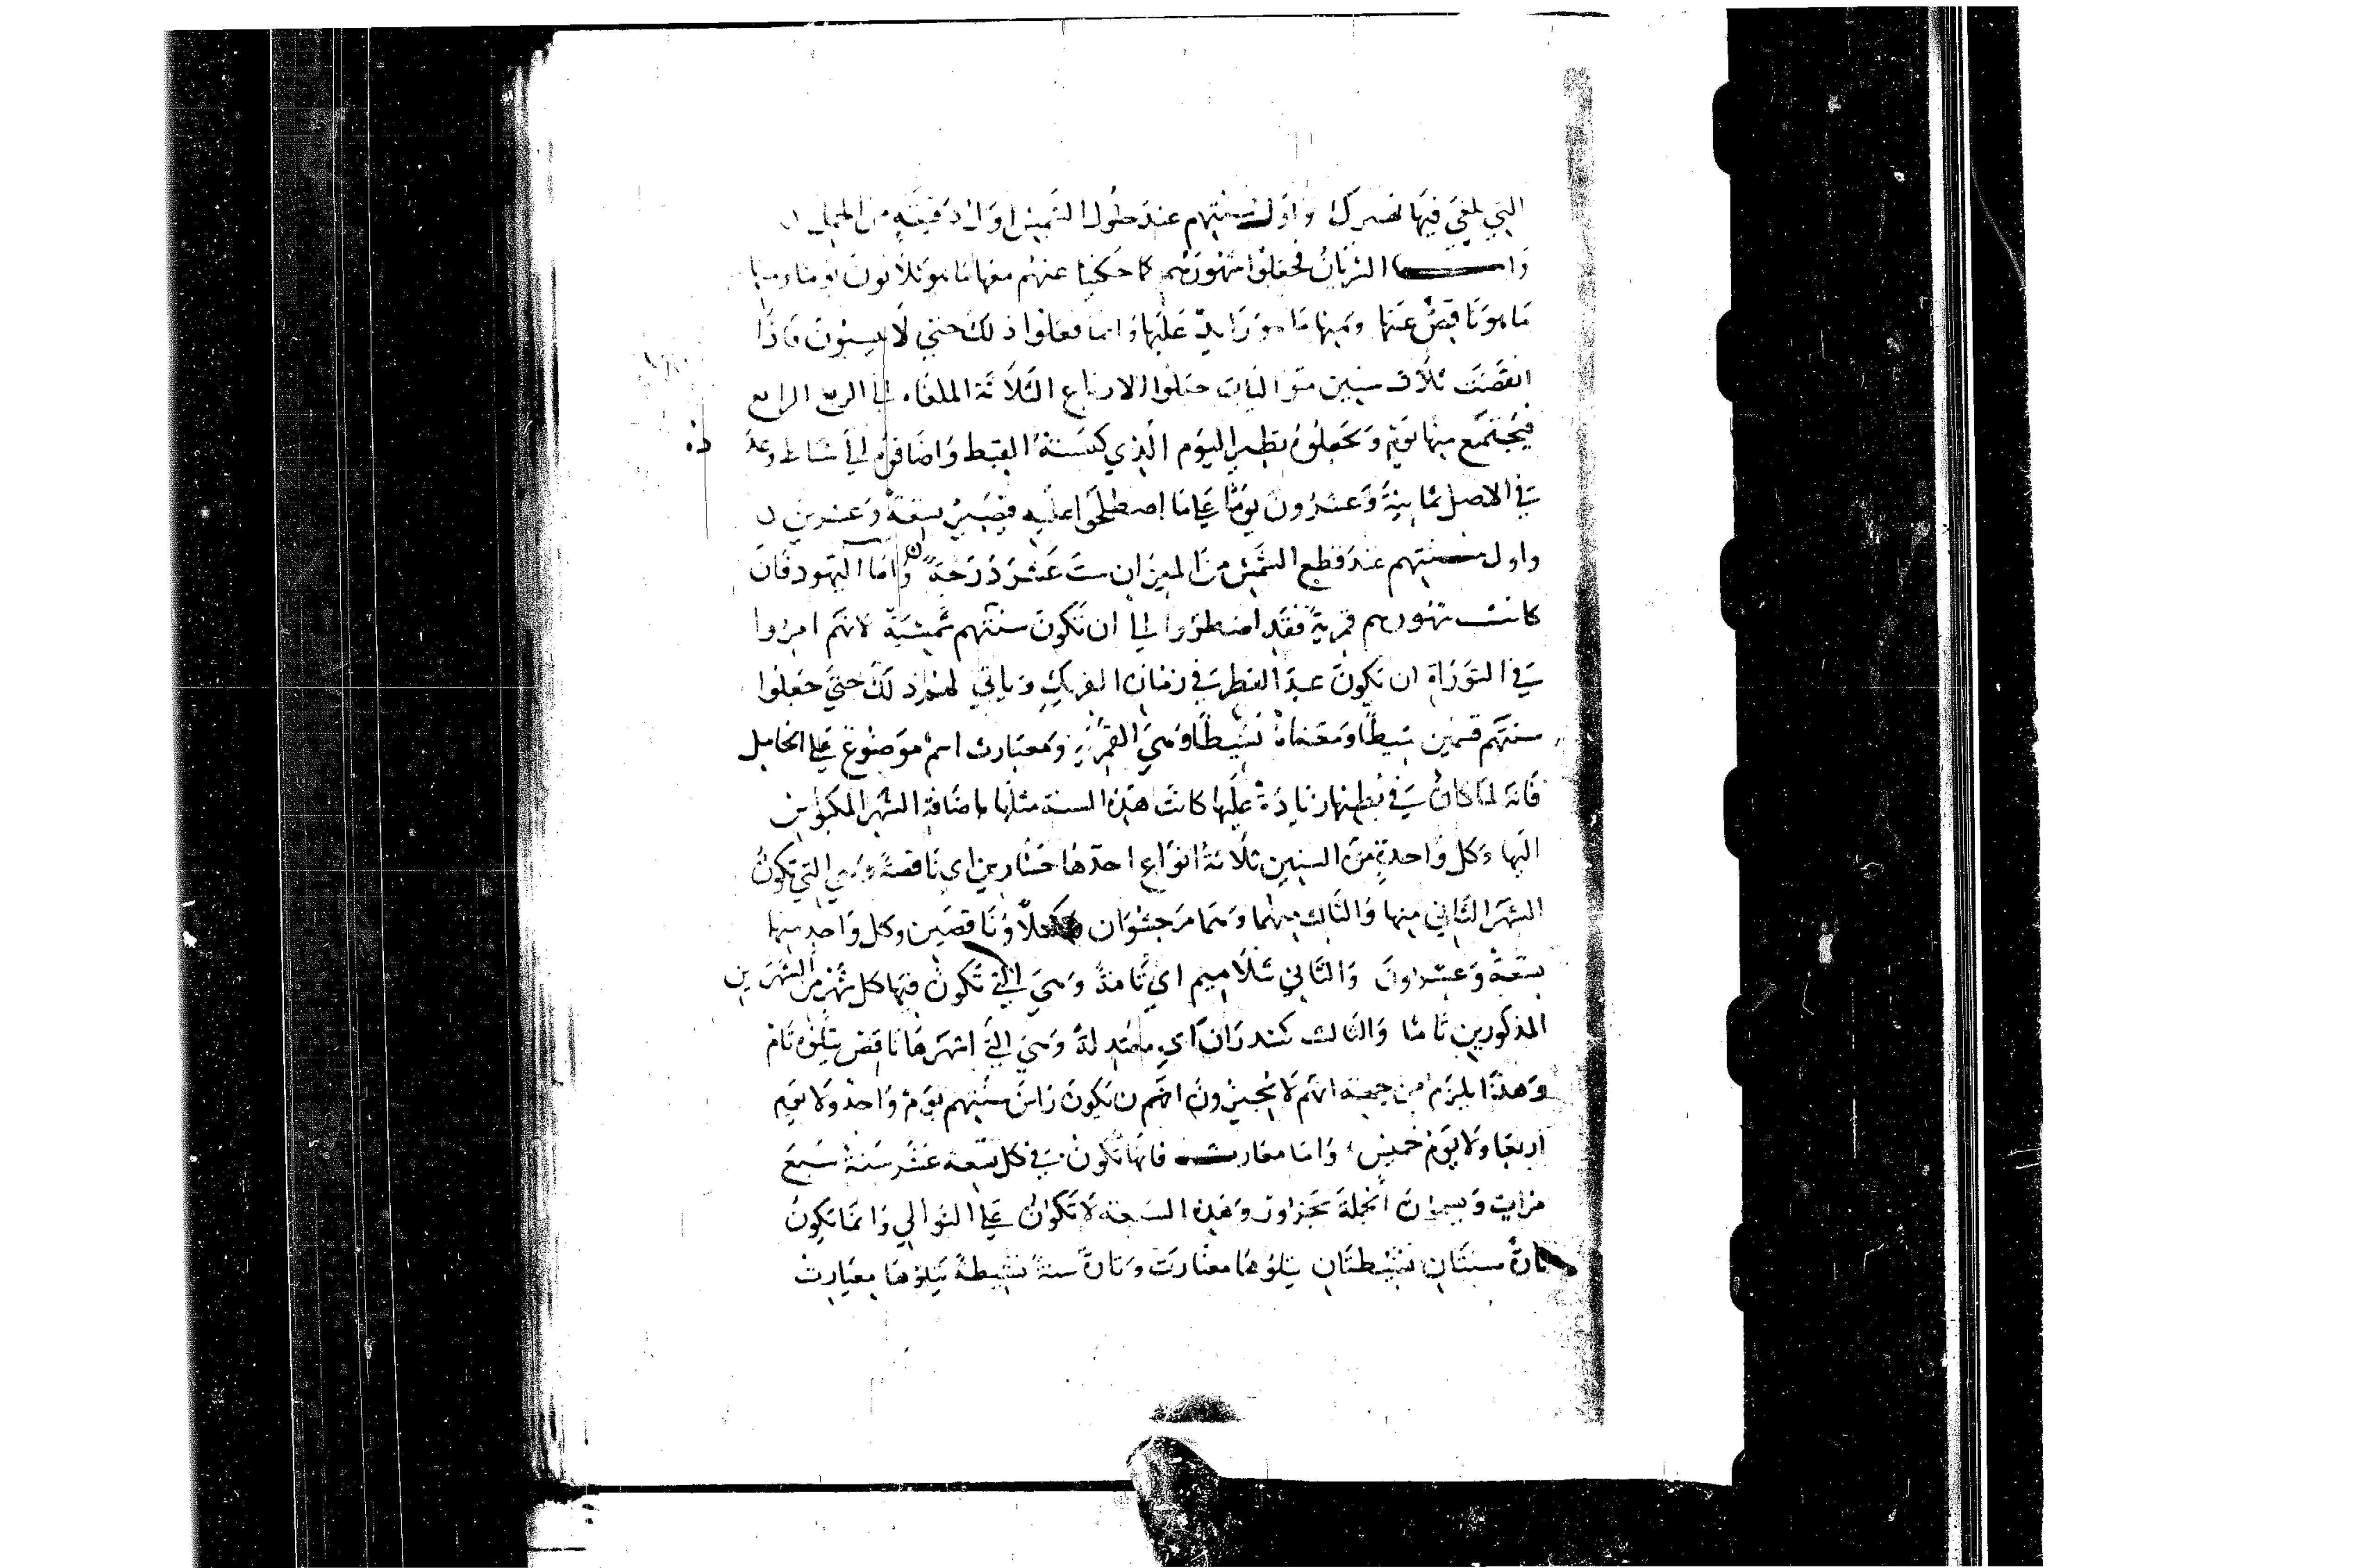 التي يلغي فيها نصيرك واول سنتهم عند حلول الشمس اول دقيقة من الحمل
واما السريان فجعلوا شهورهم كما حكينا عنهم منها ما هو ثلاثون يوما ومنها
ما هو ناقص عنها ومنها ما هو زايد عليها وانما فعلوا ذلك حتي لا ينسون فاذا
انقضت ثلاث سنين متواليات جعلوا الارباع الثلاثة الملغاه الي الربع الرابع
فيجتمع منها يوم ويجعلوه نظير اليوم الذي كبسته القبط واضافوه الي شباط وعد ده
في الاصل ثمانية وعشرون يوما علي ما اصطلحوا عليه فيصير تسعة وعشرين
واول سنتهم عند قطع الشمس من الميزان ست عشر درجة واما اليهود فان
كانت شهورهم قمرية فقد اضطروا الي ان تكون سنتهم شمسية لانهم امروا
في التوراة ان تكون عيد الفطر في زمان الفريك وياتي لهم ذلك حتي جعلوا
سنتهم قسمين بسيطا ومعناه بسيطا وهي القمرية ومعبارت اسم موضوع علي الحامل
فانه لما كان في بطنها زيادة عليها كانت هذه السنة مثلها باضافة الشهر المكبوس
اليها وكل واحدة من السنين ثلاثة انواع احدها حسارين اي ناقصة وهي التي تكون
الشهر الثاني منها والثالث وهما مرحشوان وكسلاو ناقصين وكل واحد منهما
تسعة وعشرون والثاني شلاميم اي تامة وهي التي تكون فيها كل شهر من الشهرين
المذكورين تاما والثالث كسدران اي معتدلة وهي التي اشهرها ناقص يتلوه تام
وهذا يلزم من جهة انهم لا يجيزون انهم ن يكون راس سنتهم يوم واحد ولا يوم
اربعا ولا يوم خميس واما معبارت فانها تكون في كل تسعة عشر سنة سبع
مرات ويسمون الجملة محزاور وهذه السبعة لا تكون علي التوالي وانما تكون
تارة سنتان بسيطتان يتلوها معبارت وتارة سنة بسيطة يتلوها معبارت